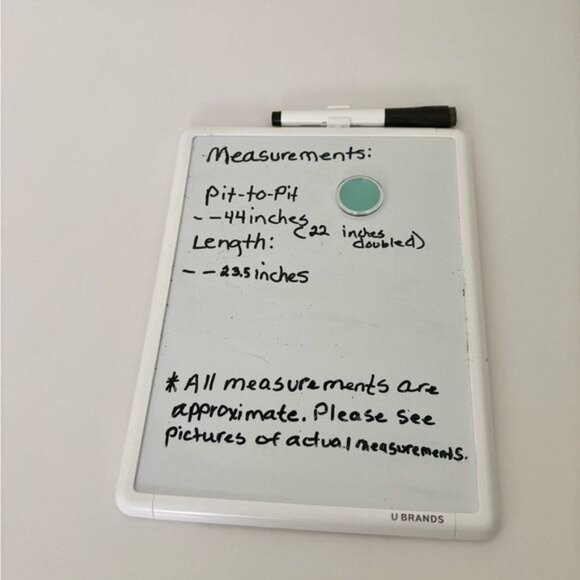 Measurements:
Pit-to-Pit
- - 44 inches
(22 inches
doubled)
Length:
- - 23.5 inches
* All measurements are
approximate. Please see
pictures of actual measurements.
U BRANDS